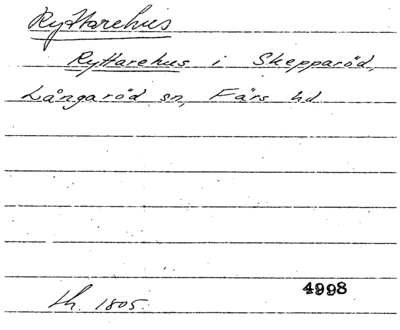 Ryttarehus
Ryttarehus i Skepparöd,
Långaröd sn, Färs hd
4998
th. 1805.